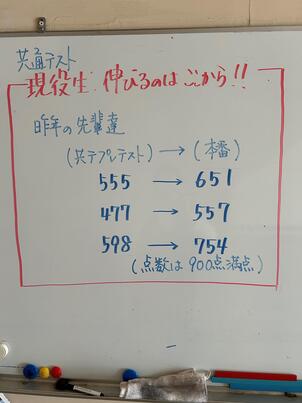 共通テスト
現役生!伸びるのはここから!!
昨年の先輩達
(共テプレテスト) → (本番)
555 → 651
477 → 557
598 → 754
(点数は900点満点)